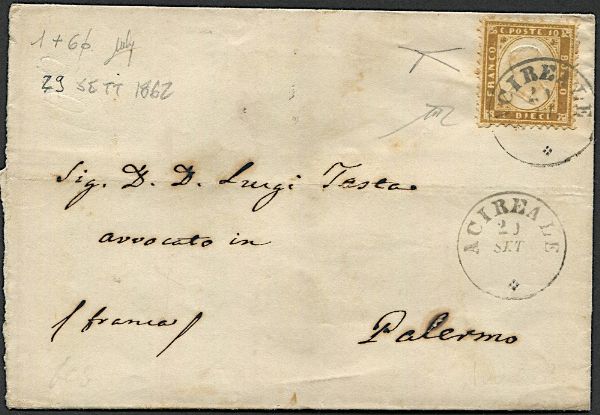 1 + 6
29 SETT 1862
C. POSTE 10
FRANCO
BOLLO
DIECI
ACIREALE
ACIREALE
SET
Sig. D. D. Luigi Testa
avvocato in
(franca)
Palermo